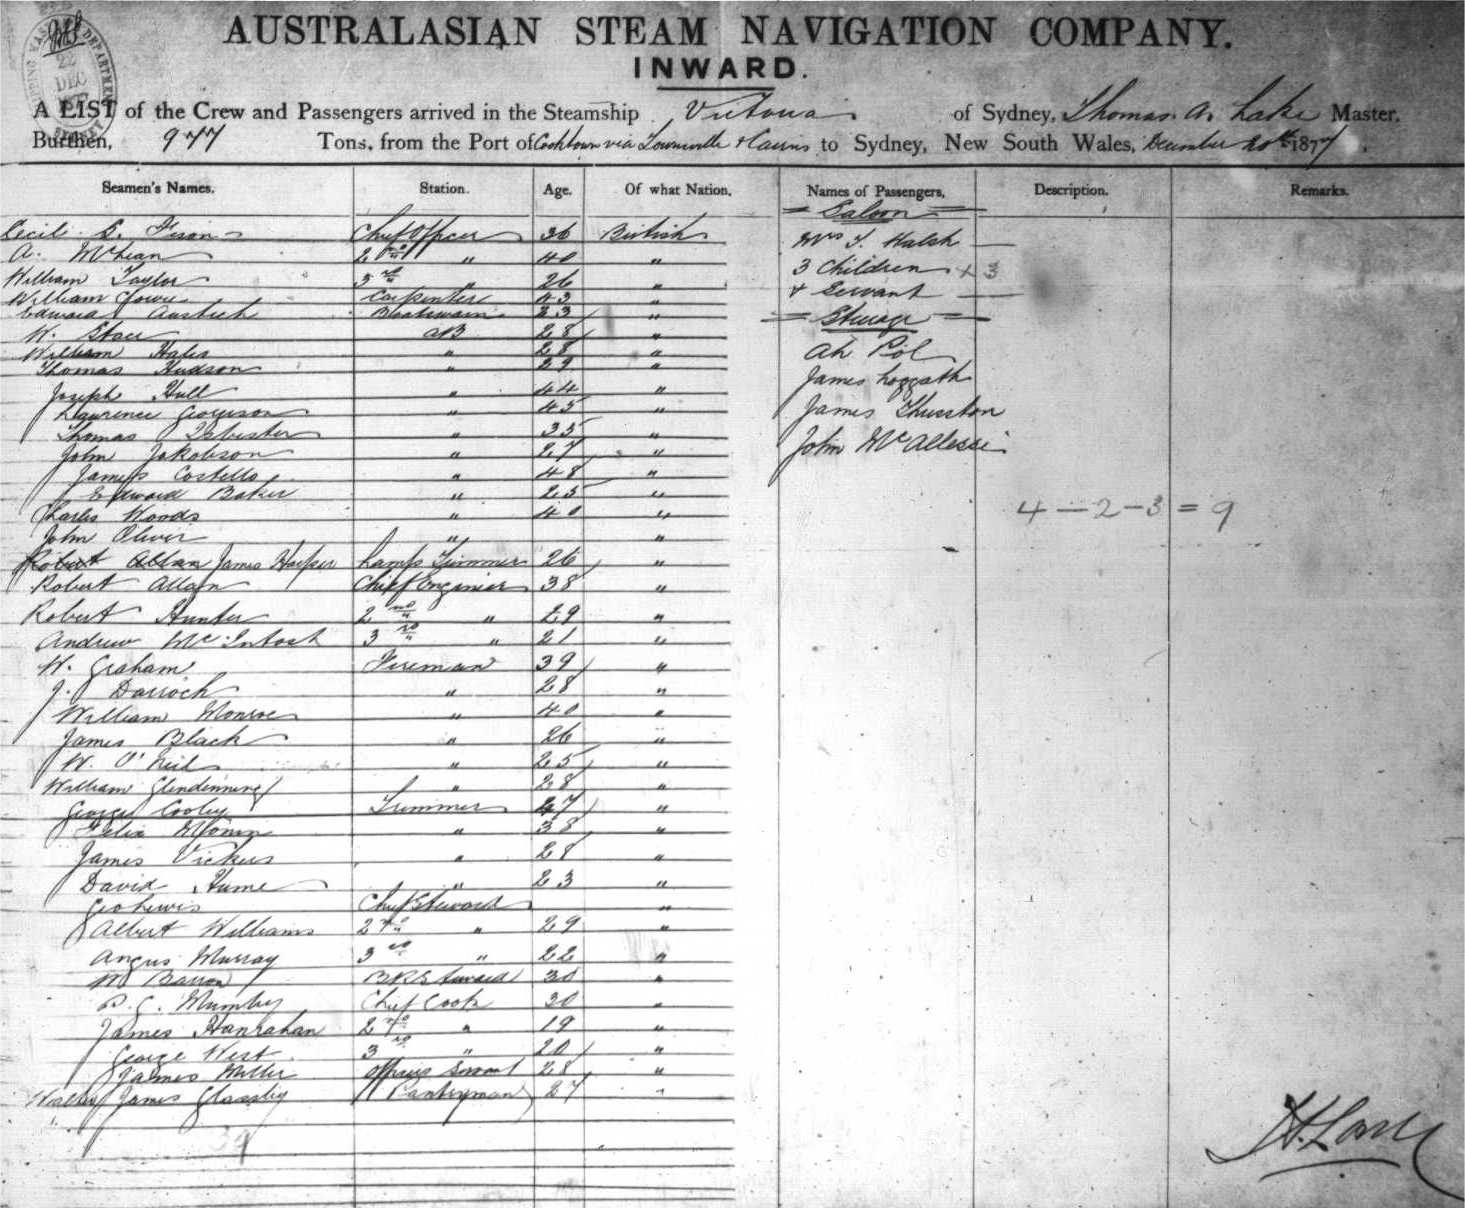 AUSTRALASIAN STEAM NAVIGATION COMPANY.
INWARD.
22
DEC
A LIST of the Crew and Passengers arrived in the Steamship Victoria of Sydney, Thomas A. Lake Master.
Burthen, 977 Tons, from the Port of Cooktown via Townsville & Cairns to Sydney, New South Wales, December 20th 1877.
Seamen's Names. Station. Age. Of what Nation. Names of Passengers, Description. Remarks.
Saloon
Cecil Fison Chief Officer 36 British Mrs Walsh
A. McLean 2nd " 40 "
3 Children + 3
William Taylor 3rd " 26 "
+ Servant
William Carpenter 43 "
Edward Boatswain 23 "
Steerage
W. AB 28 "
William Hales " 28 " Ah Pol
Thomas Hudson " 29 "
James Loggath
Joseph Hull " 44 "
Laurence Georgeson " 45 " James Thurston
Thomas Isbister " 35 "
John Jakobson " 27 " John
James Costello " 48 "
Edward Baker " 25 "
Charles Woods " 40 "
4 — 2 — 3 = 9
John Oliver " "
Robert Allan James Harper Lamp Trimmer 26 "
Robert Allan Chief Engineer 38 "
Robert Hunter 2nd " 29 "
Andrew McIntosh 3rd " 21 "
W. Graham Fireman 39 "
J. Darroch " 28 "
William Monroe " 40 "
James Black " 26 "
W. O'Neil " 25 "
William Glendinning " 28 "
George Cooley Trimmer 27 "
Felix " 38 "
James Vickers " 28 "
David Hume " 23 "
Geo Lewis Chief Steward "
Albert Williams 2nd " 29 "
Angus Murray 3rd " 22 "
W Barron Steward 30 "
Mumby Chief Cook 30 "
James Hanrahan 2nd " 19 "
George West 3rd " 20 "
James Miller Officers Servant 28 "
Walter James Glassby Pantryman 27 "
39